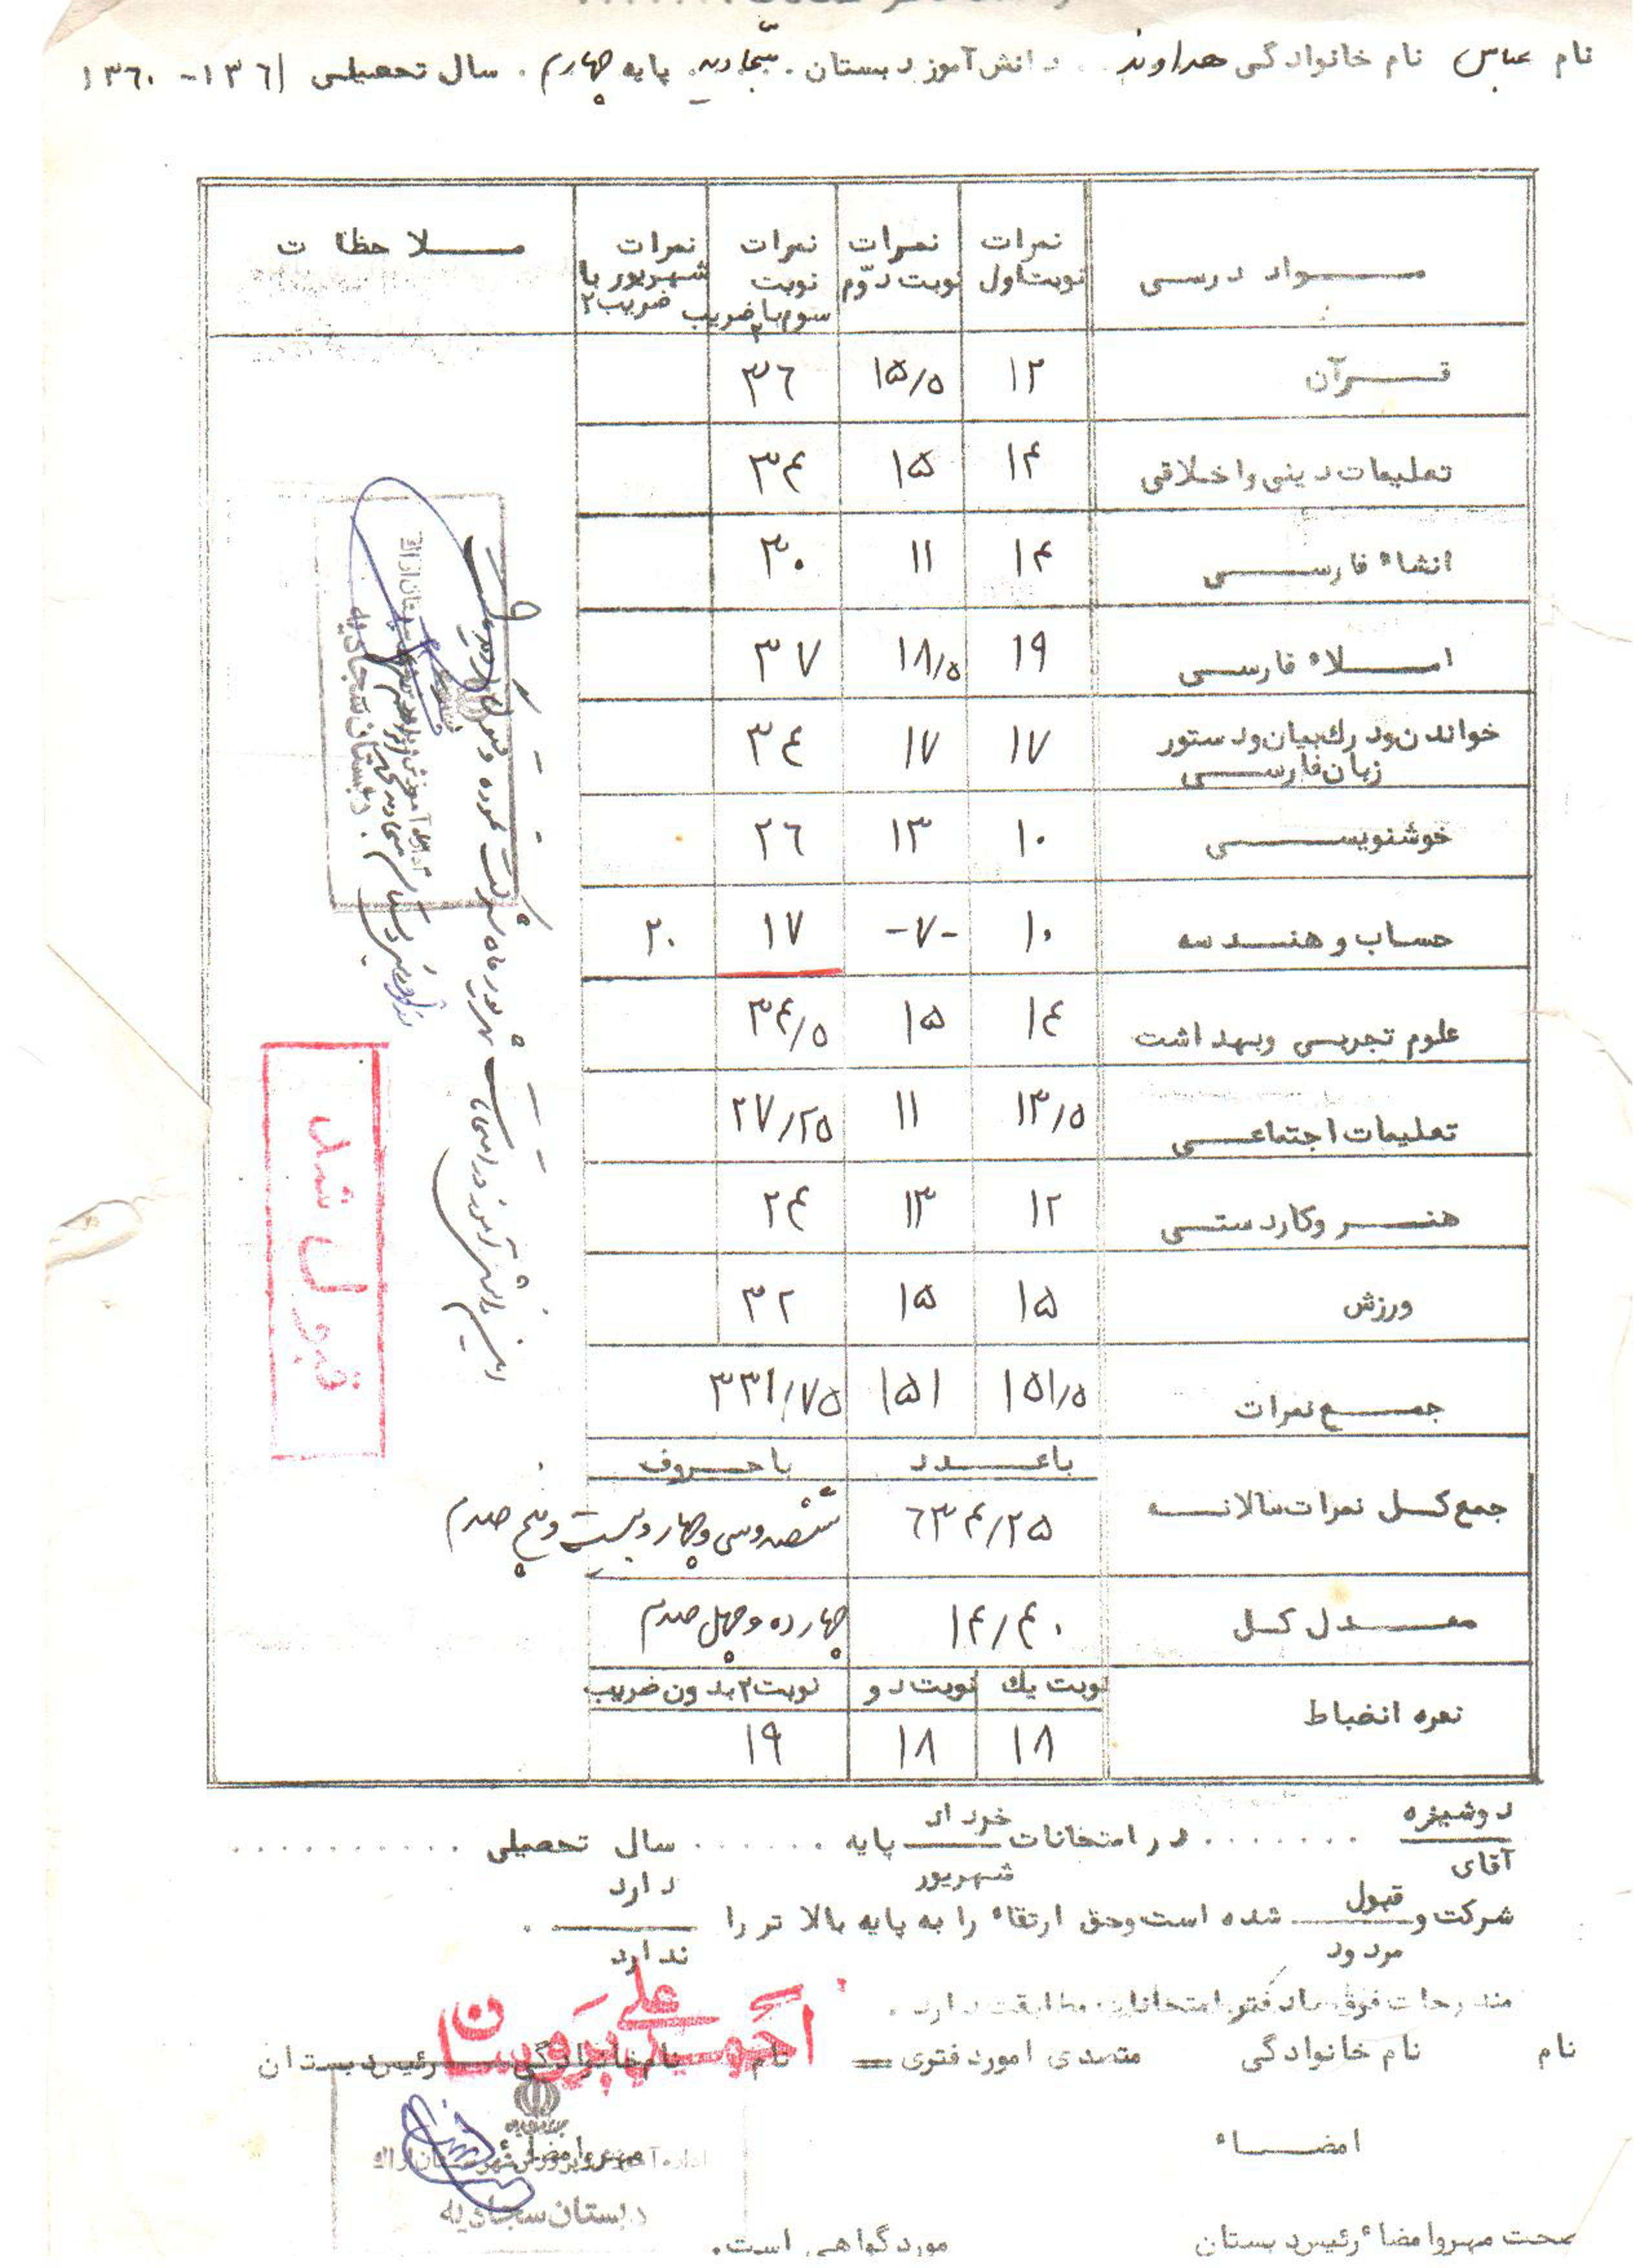 نام عباس نام خانوادگی هداوند دانش آموز دبستان سجادیه پایه چهارم سال تحصیلی ۱۳۶۱-۱۳۶۰
مواد درسی نمرات نوبت اول نمرات نوبت دوّم نمرات نوبت سوم با ضریب ۲ نمرات شهریور با ضریب ۲ ملاحظات
قرآن ۱۲ ۱۵/۵ ۳۶
تعلیمات دینی و اخلاقی ۱۴ ۱۵ ۳۴
انشاء فارسی ۱۴ ۱۱ ۳۰
املاء فارسی ۱۹ ۱۸/۵ ۳۷
خواندن و درك بیان و دستور زبان فارسی ۱۷ ۱۷ ۳۴
خوشنویسی ۱۰ ۱۳ ۲۶
حساب و هندسه ۱۰ -۷- ۱۷ ۲۰
علوم تجربی و بهداشت ۱۴ ۱۵ ۳۴/۵
تعلیمات اجتماعی ۱۳/۵ ۱۱ ۲۷/۲۵
هنر و کاردستی ۱۲ ۱۳ ۲۴
ورزش ۱۵ ۱۵ ۳۲
جمع نمرات ۱۵۱/۵ ۱۵۱ ۳۳۱/۷۵
با عدد با حروف
جمع کل نمرات سالانه ۶۳۴/۲۵ ششصد و سی و چهار و بیست و پنج صدم
معدل کل ۱۴/۴۰ چهارده و چهل صدم
نوبت یك نوبت دو نوبت ۳ بدون ضریب
نمره انضباط ۱۸ ۱۸ ۱۹
این دانش آموز در امتحانات شهریور ماه شرکت نموده و قبول
دبستان سجادیه
قبول شد
دوشیزه
آقای ........ در امتحانات خرداد
شهریور پایه ....... سال تحصیلی ..........
شرکت و قبول
مردود شده است و حق ارتقاء را به پایه بالاتر را دارد
ندارد .
مندرجات فوق با دفتر امتحانات مطابقت دارد .
نام نام خانوادگی متصدی امور دفتری = نام نام خانوادگی رئیس دبستان
احمد علی بروسان
امضاء مهر و امضاء
اداره آموزش و پرورش شهرستان اراك
دبستان سجادیه
صحت مهر و امضاء رئیس دبستان مورد گواهی است.